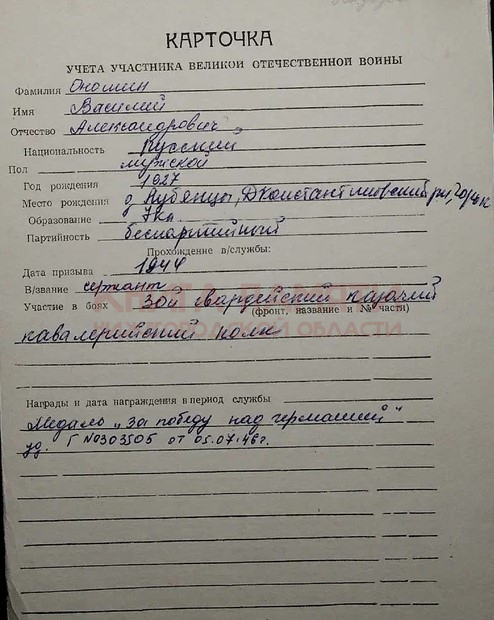 КАРТОЧКА
УЧЕТА УЧАСТНИКА ВЕЛИКОЙ ОТЕЧЕСТВЕННОЙ ВОЙНЫ
Фамилия Ономин
Имя Василий
Отчество Александрович
Национальность Русский
Пол мужской
Год рождения 1927
Место рождения д. Кубянцы, Дконстантиновский рн,
Образование 7кл.
Партийность беспартийный
Прохождение в/службы:
Дата призыва 1944
В/звание сержант
Участие в боях 30й гвардейский казачий
(фронт, название и № части)
кавалерийский полк
КНИГА ПАМЯТИ
НИЖЕГОРОДСКОЙ ОБЛАСТИ
Награды и дата награждения в период службы
Медаль „за победу над германией"
уд. Г №0303505 от 05.07.46г.